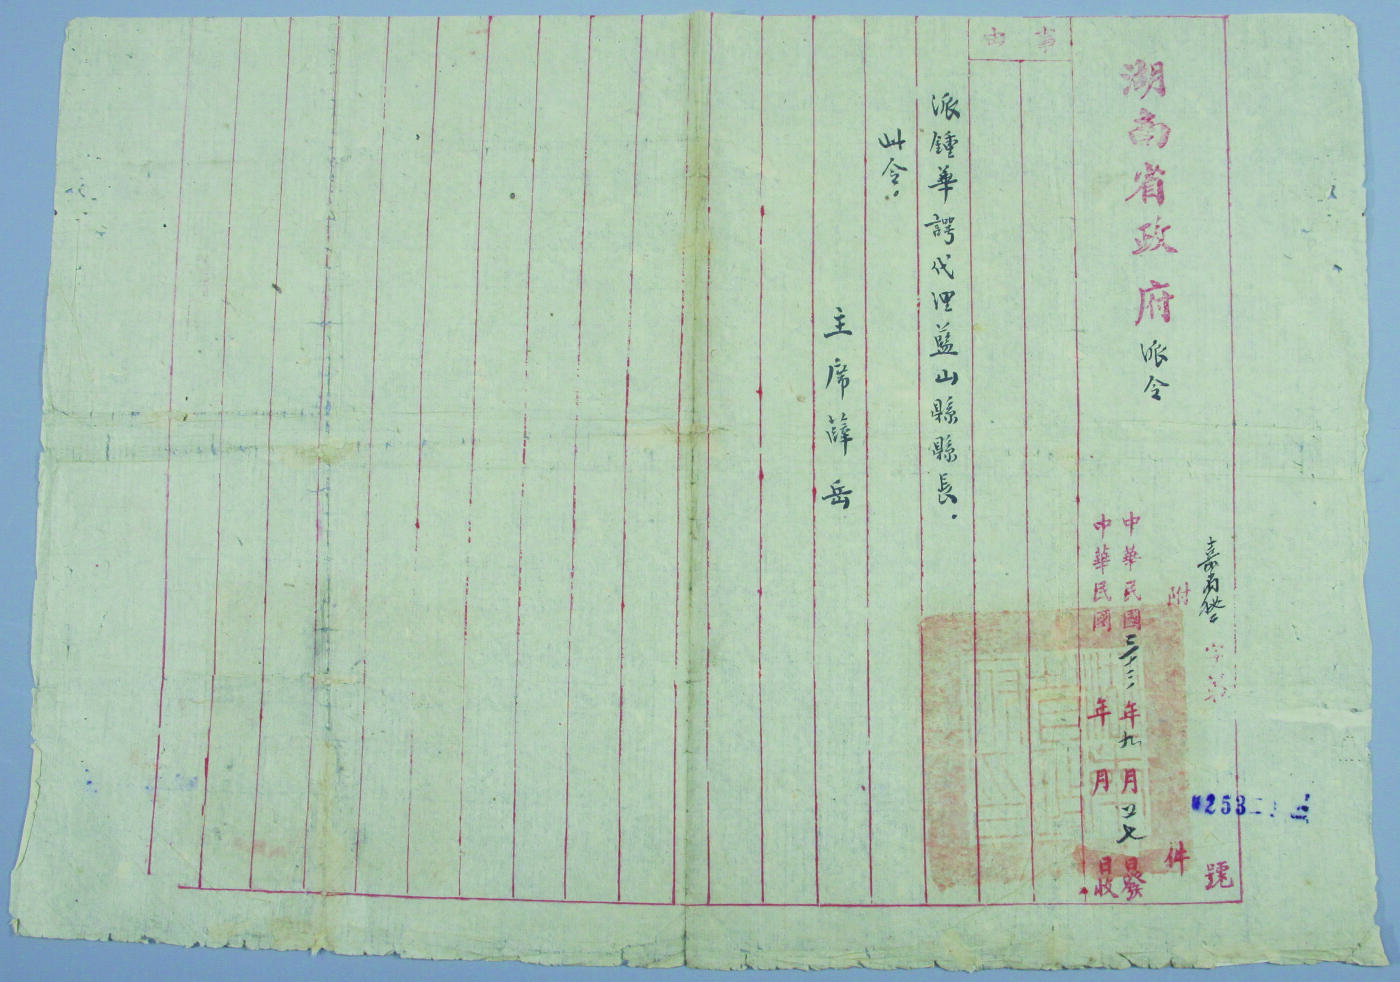 湖南省政府派令
字第
號
附
件
中華民國三十三年九月廿七日發
中華民國 年 月 日收
事由
派鍾華諤代理藍山縣縣長。
此令。
主席薛岳